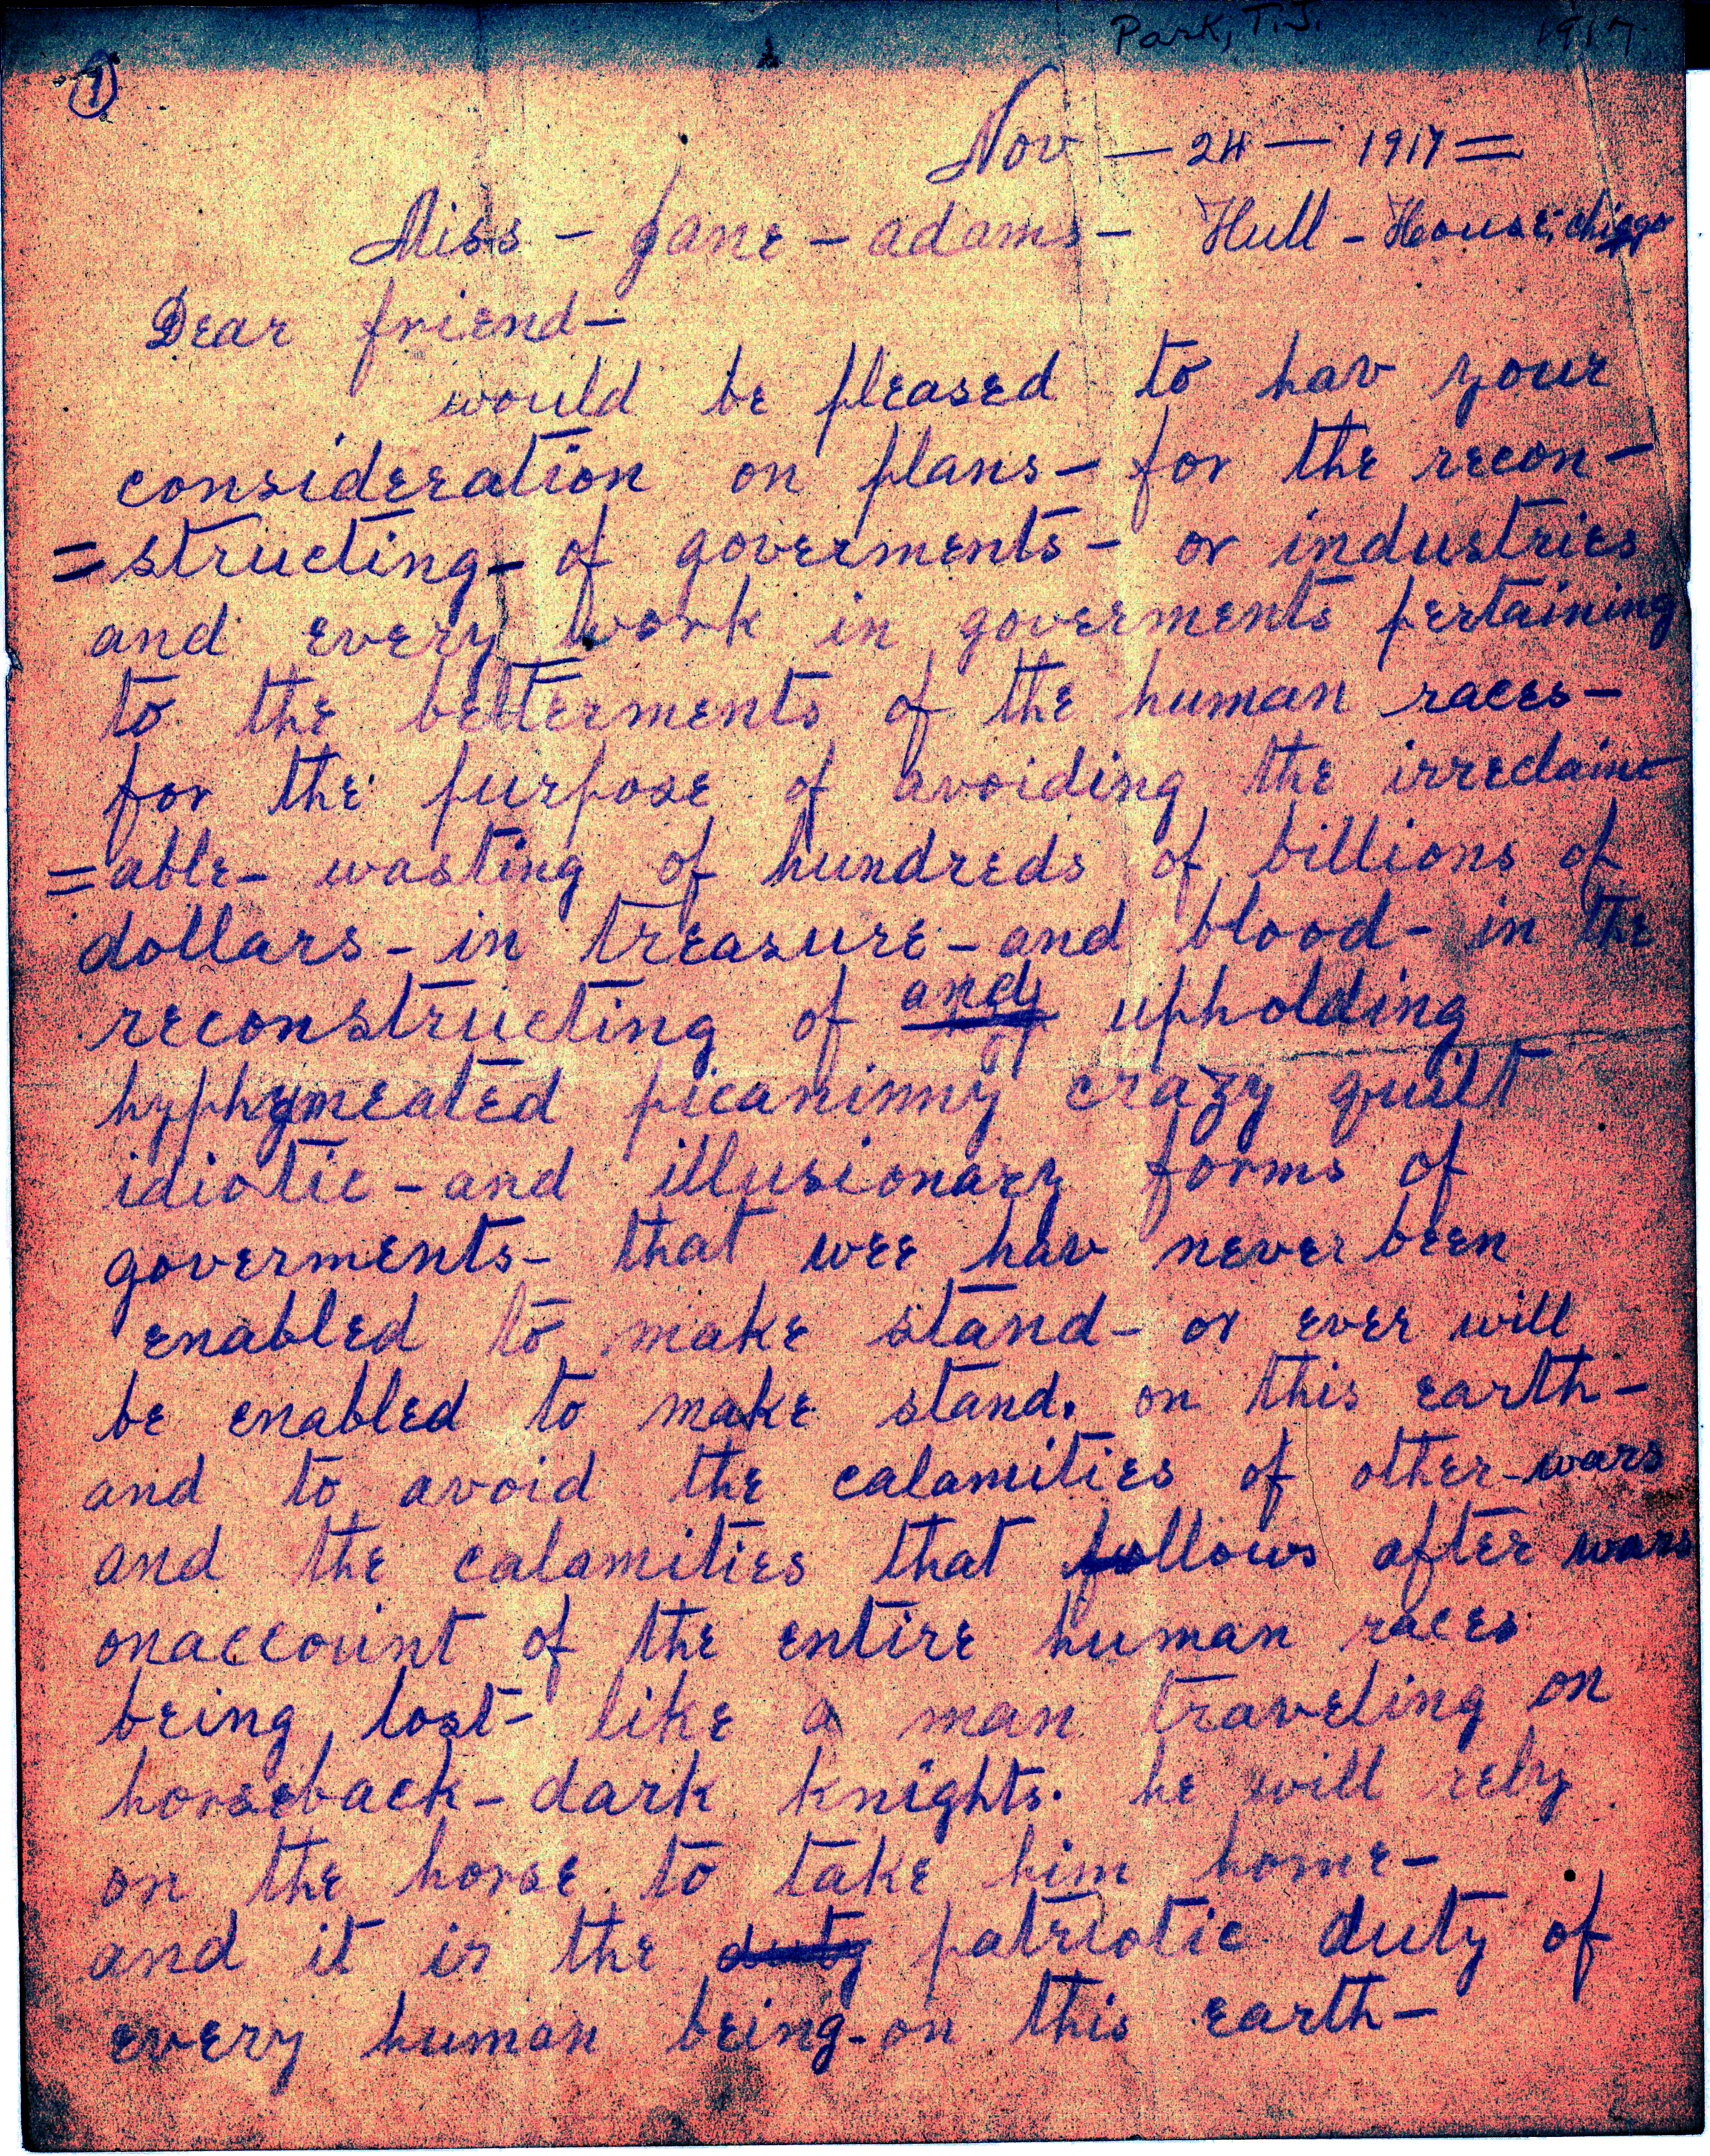 Park, T.J. 1917
1
Nov — 24 — 1917 =
Miss - Jane - adams - Hull - House, chicgo
Dear friend -
would be pleased to hav your
consideration on plans - for the recon -
= structing - of goverments - or industries
and every work in goverments pertaining
to the betterments of the human races -
for the purpose of avoiding the irreclaim
= able - wasting of hundreds of billions of
dollars - in treasure - and blood - in the
reconstructing of and upholding
hyphymeated picaninny crazy quilt
idiotic - and illusionary forms of
goverments - that wee hav never been
enabled to make stand - or ever will
be enabled to make stand. on this earth -
and to avoid the calamities of other - wars
and the calamities that follows after wars
onaccount of the entire human races
being lost - like a man traveling on
horseback - dark knights. he will rely
on the horse to take him home -
and it is the duty patriotic duty of
every human being - on this earth -